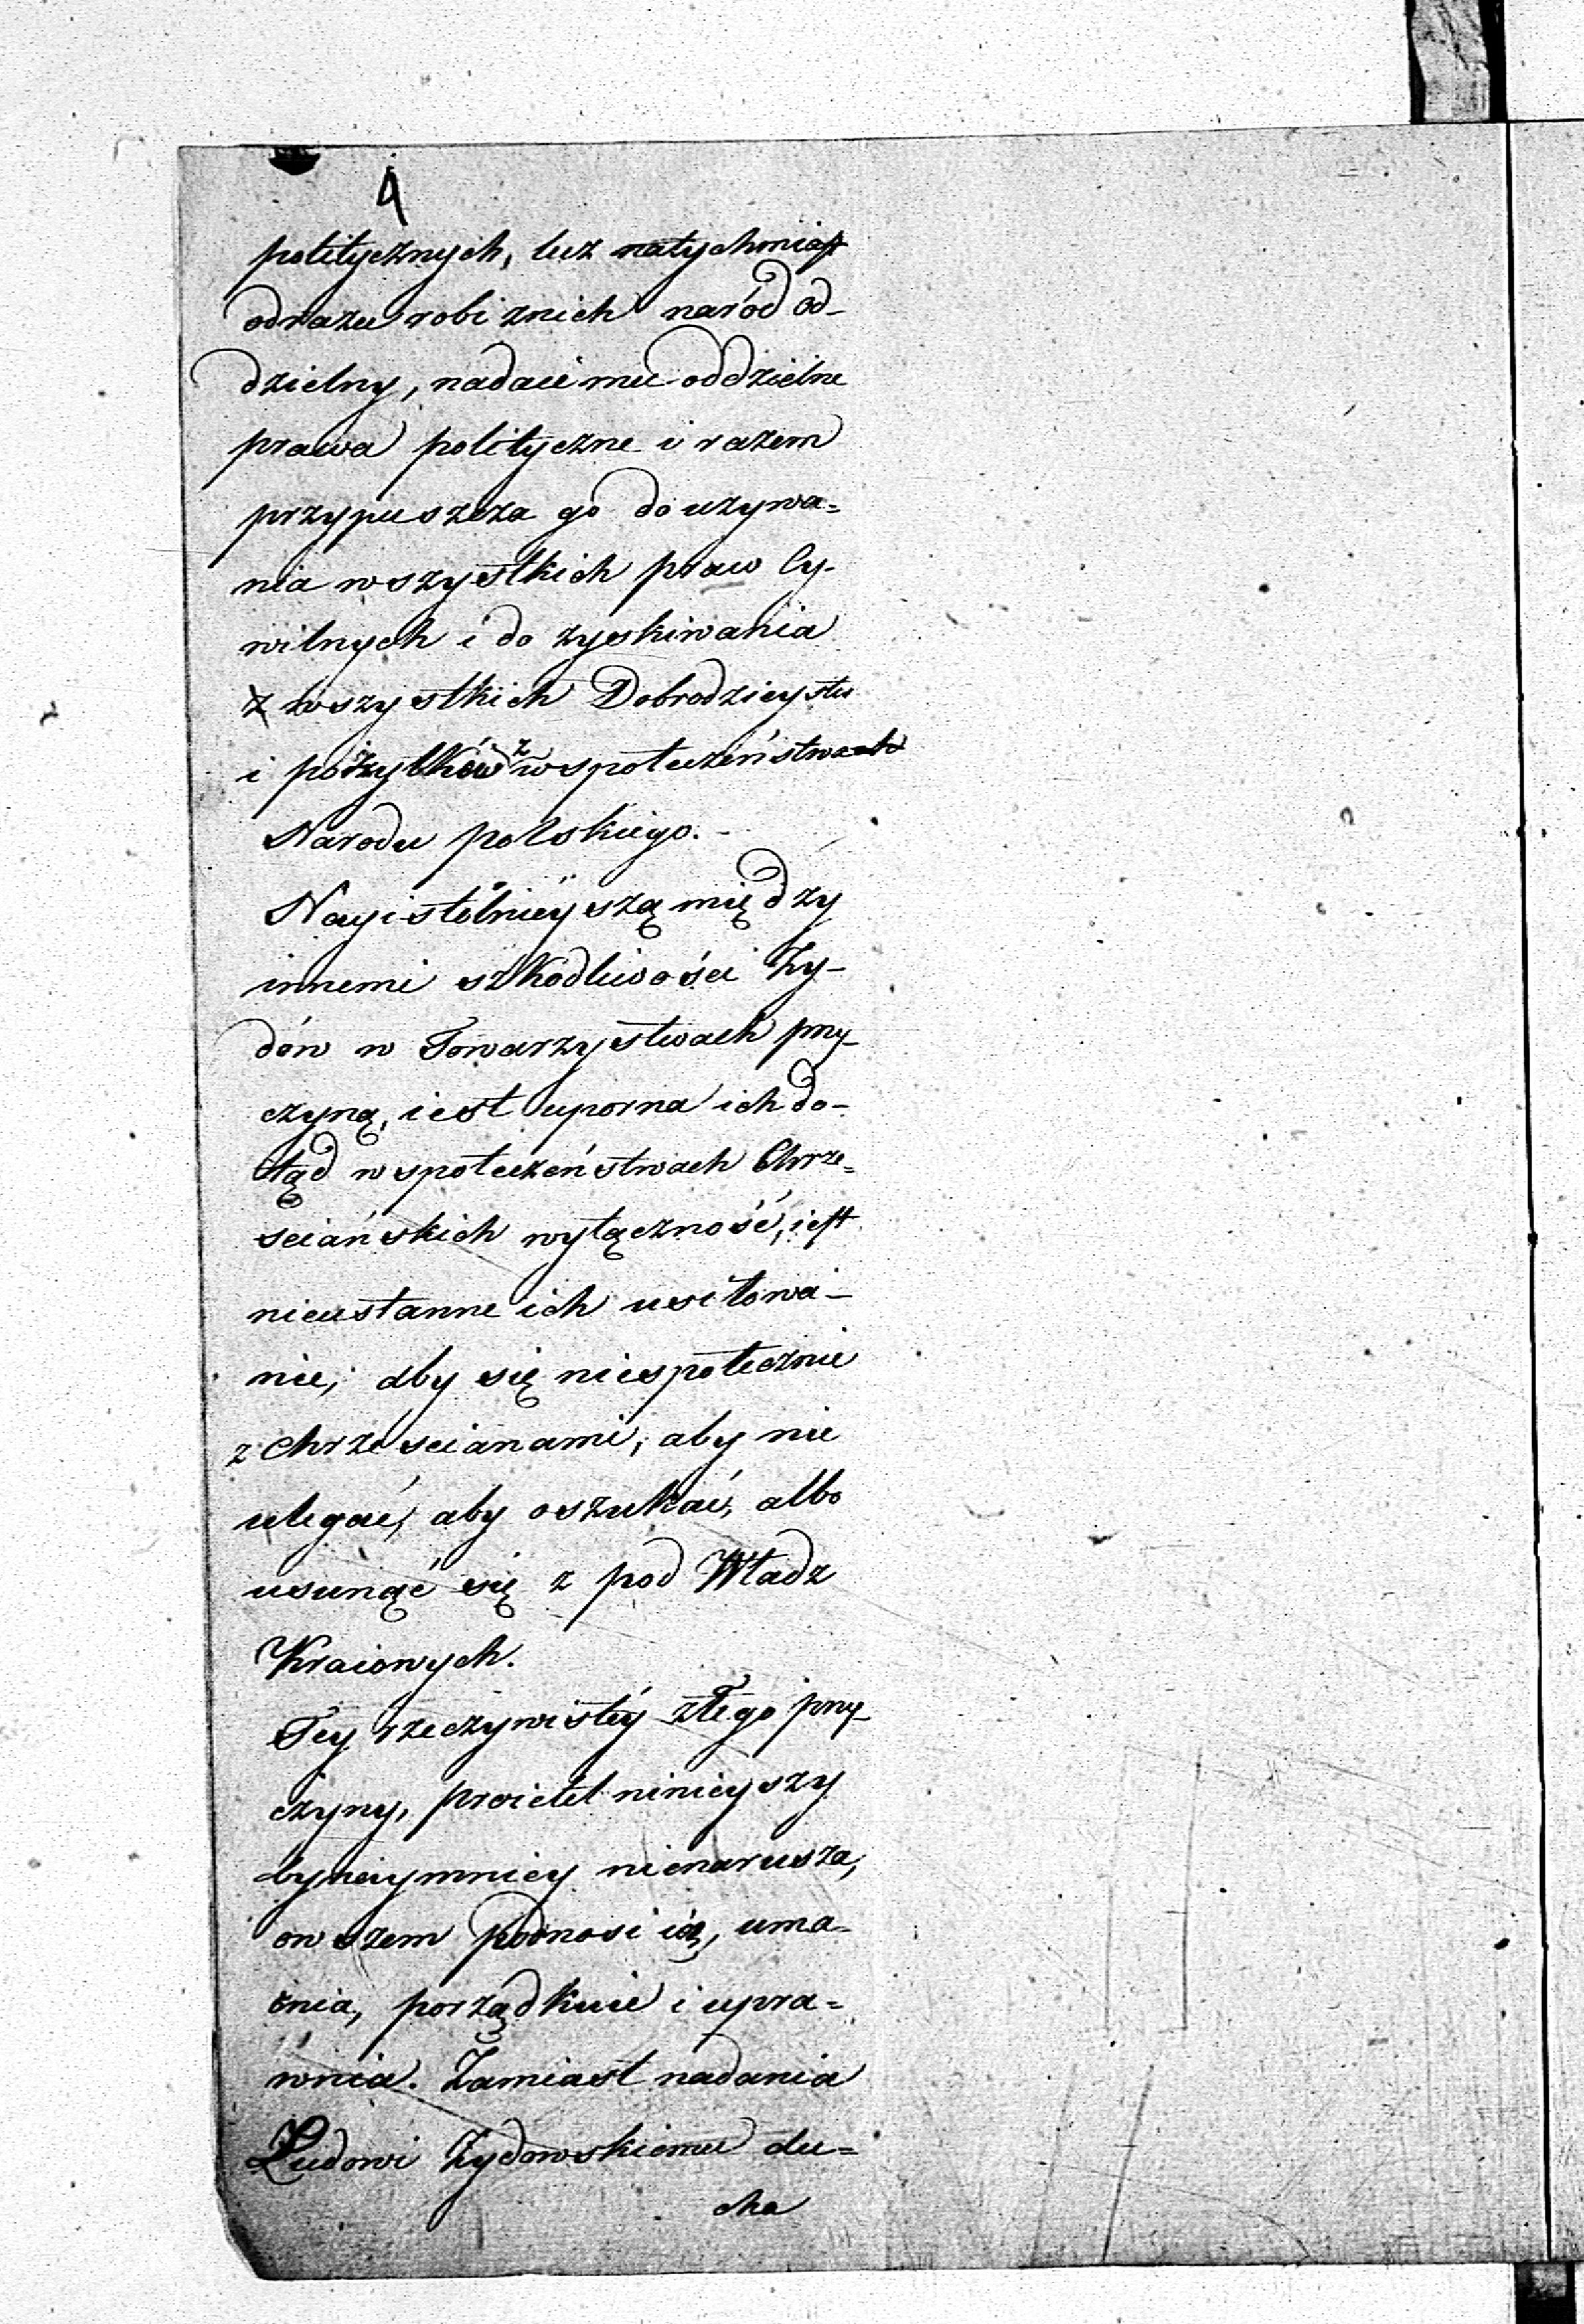 4
politycznych, lecz natychmiast
odrazu robi znich naród od-
dzielny, nadaie mu oddzielne
prawa polityczne i razem
przypuszcza go do używa=
nia wszystkich praw Cy-
wilnych i do zyskiwania
z wszystkich Dobrodzieystw
i pożytków z współeczeństwach
Narodu polskiego.-
Nayistotnieyszą między
innemi szkodliwości Ży-
dów w Towarzystwach przy-
czyną, iest uporna ich do-
tąd w społeczeństwach Chrze=
sciańskich wyłączność, iest
nieustanne ich usiłowa-
nie, aby się niespołecznie
z Chrzescianami, aby nie
ulegać, aby oszukać, albo
usunąć się z pod Władz
Kraiowych.
Tey rzeczywistéy złego przy-
czyny, proiekt ninieyszy
bynaymniey nienarusza,
owszem podnosi ią, uma-
cnia, porządkuie i upra=
wnia. Zamiast nadania
Ludowi Żydowskiemu du=
cha